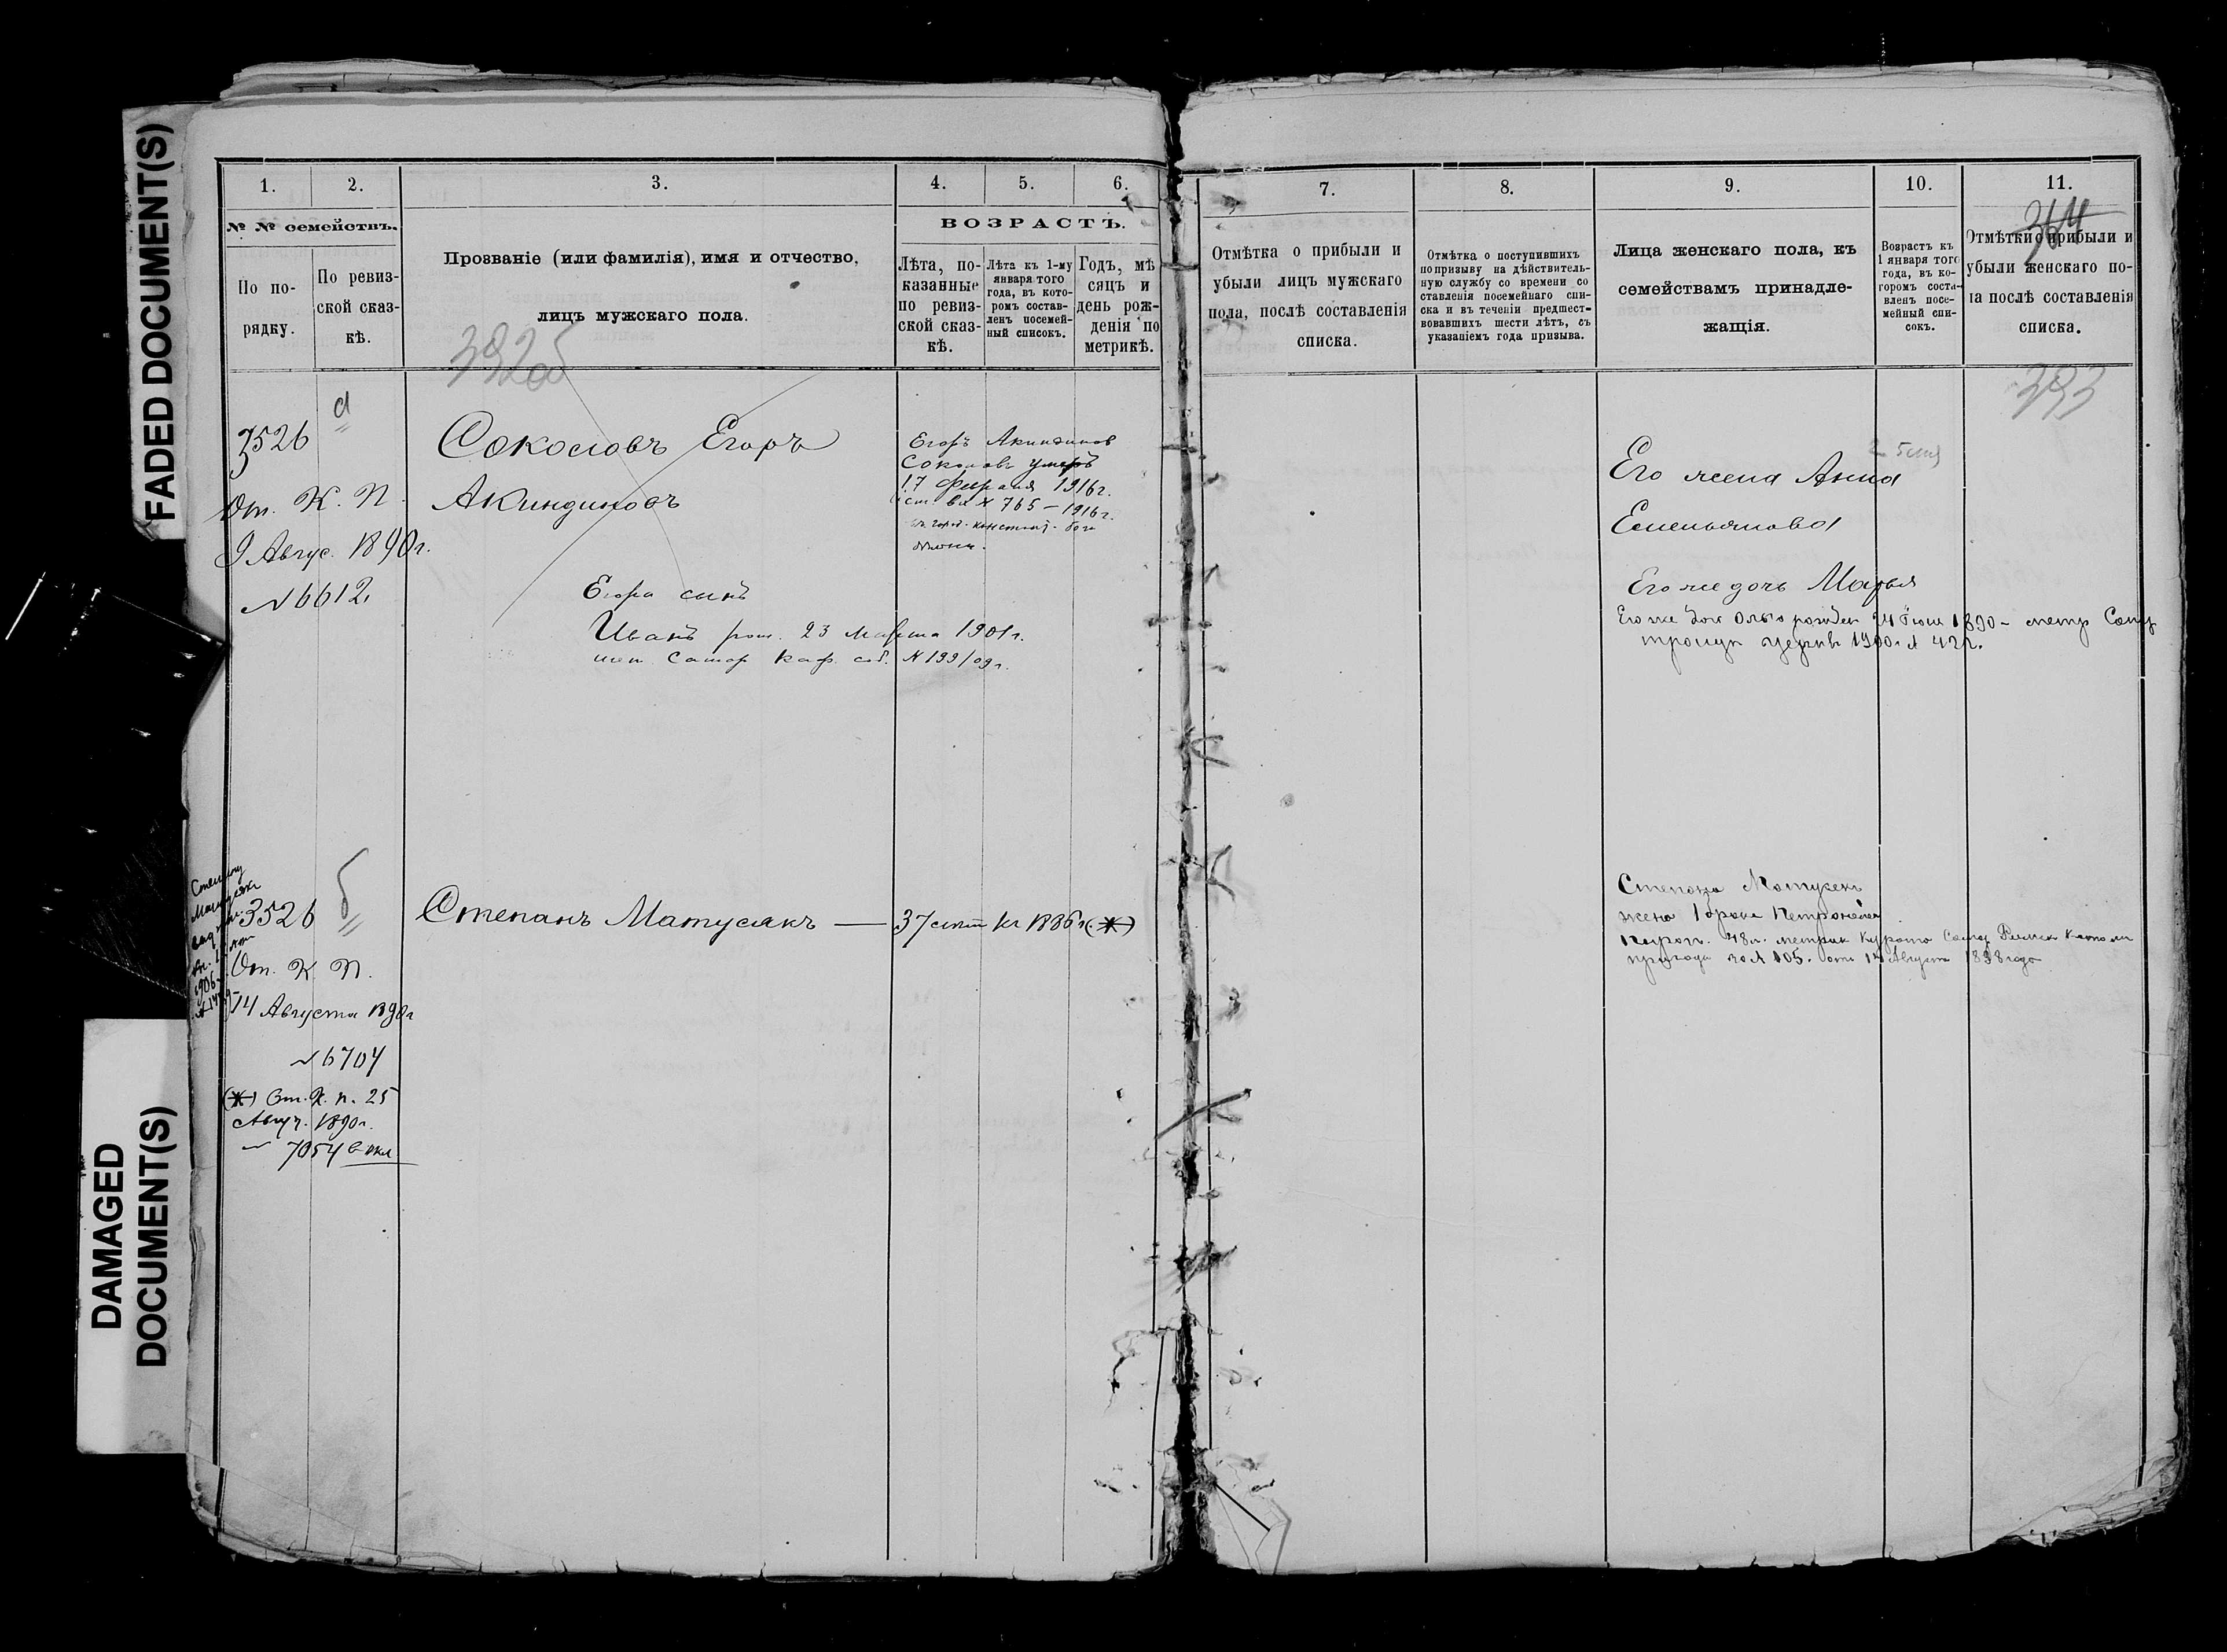 FADED DOCUMENT(S)
DAMAGED
DOCUMENT(S)
1.
2.
3.
4.
5.
6.
№ № семействъ.
ВОЗРАСТЪ.
По по-
рядку.
По ревиз-
ской сказ-
кѣ.
Прозваніе (или фамилія), имя и отчество,
лицъ мужскаго пола.
Лѣта, по-
казанные
по ревиз-
ской сказ-
кѣ.
Лѣта къ 1-му
января того
года, въ кото-
ромъ состав-
ленъ посемей-
ный списокъ.
Годъ, мѣ
сяцъ и
день рож-
денія по
метрикѣ.
392об
а
3526
От. К. П.
9 Авгус. 1890г.
№ 6612
Соколовъ Егоръ
Акиндиновъ
Егоръ Акиндинов
Соколовъ умеръ
17 Февраля 1916г.
вх 765 – 1916г.
Егора сынъ
Иванъ рож. 23 Марта 1901г.
Самар Каф. соб. № 199/09г.
Степану
б
3526
От. К. П.
14 Августа 1890г
№ 6704
(Ж) От. К. п. 25
Авгу. 1890г.
№ 7054
Степанъ Матусякъ — 37 лет къ 1886 г. (Ж)
7.
8.
9.
10.
11.
364
Отмѣтка о прибыли и
убыли лицъ мужскаго
пола, послѣ составленія
списка.
Отмѣтка о поступившихъ
по призыву на дѣйствитель-
ную службу со времени со
ставленія посемейнаго спи-
ска и въ теченіи предшест-
вовавшихъ шести лѣтъ, съ
указаніемъ года призыва.
Лица женскаго пола, къ
семействамъ принадле-
жащія.
Возрастъ къ
1 января того
года, въ ко-
торомъ соста-
вленъ посе-
мейный спи-
сокъ.
Отмѣтки о прибыли и
убыли женскаго по-
ла послѣ составленія
списка.
393
Его жена Анна
Емельянова
Его же дочь Марья
Его же доч Ольга рожден 24 Июля 1890 – метр Самар
троицк церкви 1900 г № 422.
Степана Матусяк
жена 1 брака Петронелия
48 л. метрик Самар Римск Католи
прихода за № 105. от 14 Августа 1898 года